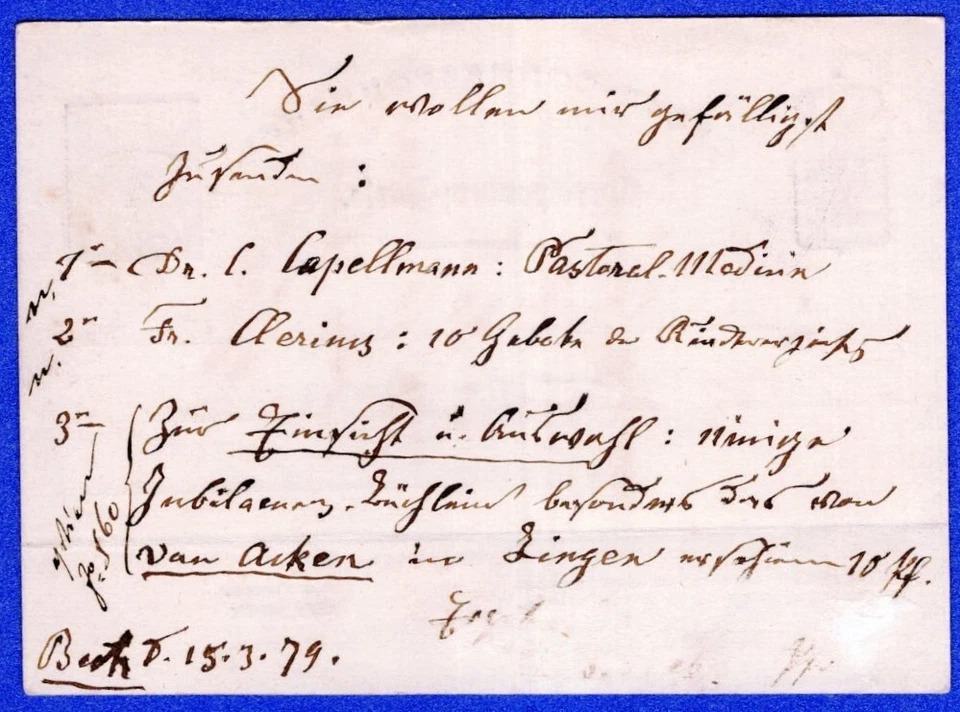 Sie wollen mir gefälligst
zusenden :
1ª Dr. C. Capellmann : Pastoral-Medizin
2ª Fr. Clerinz : 10 Gebote der Kinder
3ª Zur Einsicht u. Auswahl : einige
Jubilaeums-Büchlein besonders das von
van Acken in Lingen erschienen 10 Pf.
D. 15.3.79.